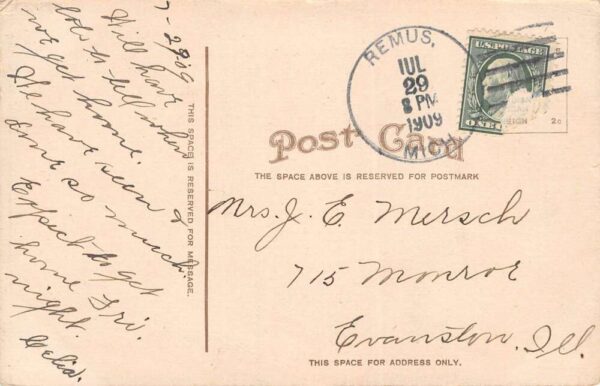 7-29-'9
Will have
lots to tell when
we get home.
We have seen &
done so much.
Expect to get
home Fri.
night.
Celia.
THIS SPACE IS RESERVED FOR MESSAGE.
REMUS,
JUL
29
8 PM
1909
MICH
U.S. POSTAGE
2c
Post Card
THE SPACE ABOVE IS RESERVED FOR POSTMARK
Mrs. J. E. Mersch
715 Monroe
Evanston, Ill.
THIS SPACE FOR ADDRESS ONLY.